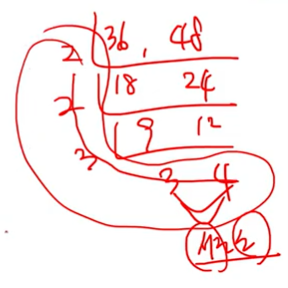 2 36, 48
2 18 24
3 9 12
3 4
서로소